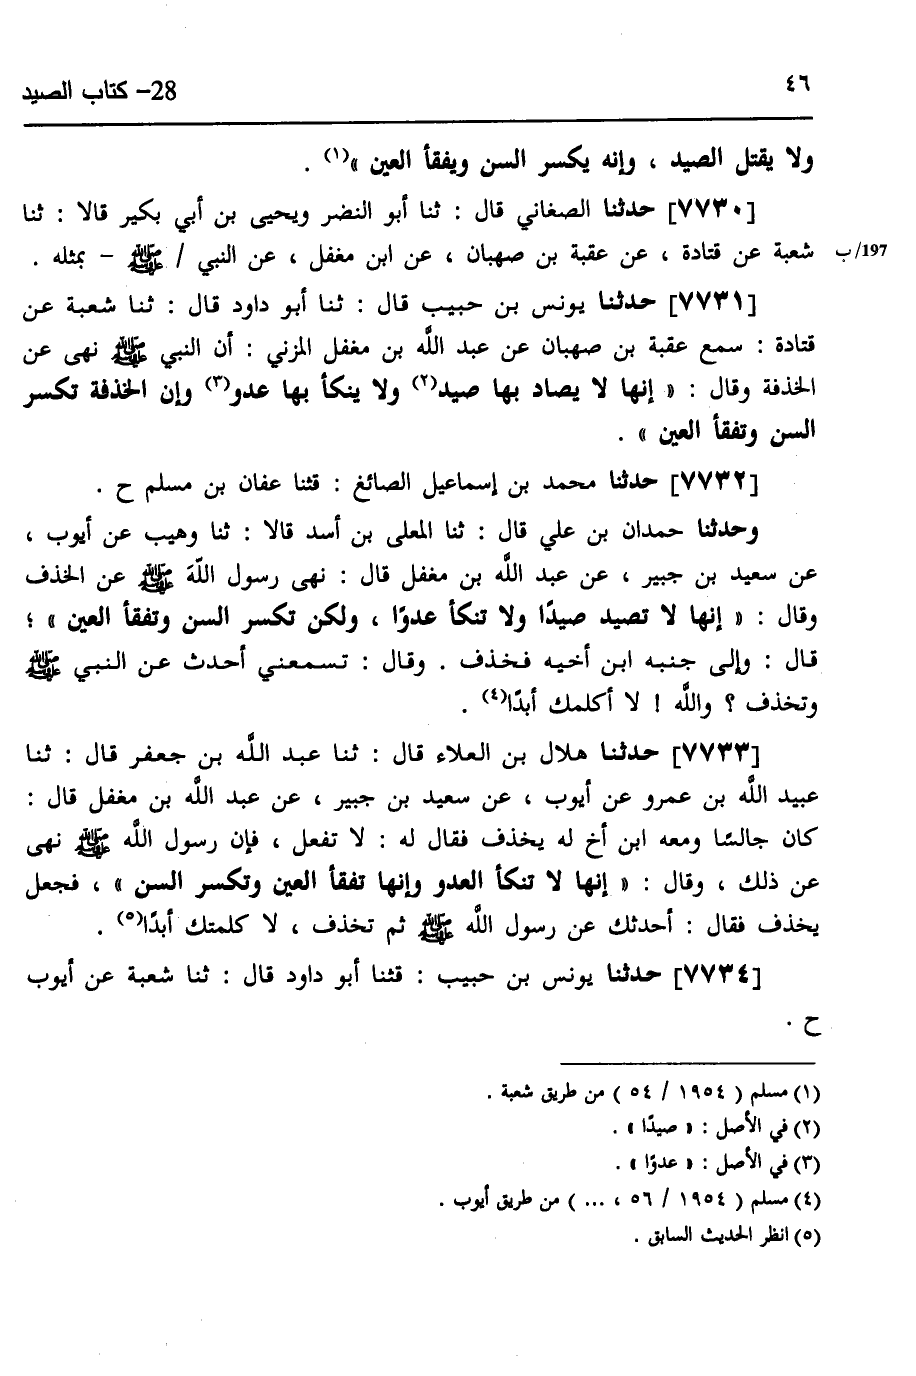 ٤٦
28- كتاب الصيد
ولا يقتل الصيد ، وإنه يكسر السن ويفقأ العين »(١) .
[٧٧٣٠] حدثنا الصغاني قال : ثنا أبو النضر ويحيى بن أبي بكير قالا : ثنا
شعبة عن قتادة ، عن عقبة بن صهبان ، عن ابن مغفل ، عن النبي / ﷺ – بمثله .
197/ب
[٧٧٣١] حدثنا يونس بن حبيب قال : ثنا أبو داود قال : ثنا شعبة عن
قتادة : سمع عقبة بن صهبان عن عبد اللَّه بن مغفل المزني : أن النبي ﷺ نهى عن
الخذفة وقال : « إنها لا يصاد بها صيد(٢) ولا ينكأ بها عدو(٣) وإن الخذفة تكسر
السن وتفقأ العين » .
[٧٧٣٢] حدثنا محمد بن إسماعيل الصائغ : قثنا عفان بن مسلم ح .
وحدثنا حمدان بن علي قال : ثنا المعلى بن أسد قالا : ثنا وهيب عن أيوب ،
عن سعيد بن جبير ، عن عبد اللَّه بن مغفل قال : نهى رسول اللَّهَ ﷺ عن الخذف
وقال : « إنها لا تصيد صيدًا ولا تنكأ عدوًا ، ولكن تكسر السن وتفقأ العين » ؛
قال : وإلى جنبه ابن أخيه فخذف . وقال : تسمعني أحدث عن النبي ﷺ
وتخذف ؟ واللَّه ! لا أكلمك أبدًا(٤) .
[٧٧٣٣] حدثنا هلال بن العلاء قال : ثنا عبد اللَّه بن جعفر قال : ثنا
عبيد اللَّه بن عمرو عن أيوب ، عن سعيد بن جبير ، عن عبد اللَّه بن مغفل قال :
كان جالسًا ومعه ابن أخ له يخذف فقال له : لا تفعل ، فإن رسول اللَّه ﷺ نهى
عن ذلك ، وقال : « إنها لا تنكأ العدو وإنها تفقأ العين وتكسر السن » ، فجعل
يخذف فقال : أحدثك عن رسول اللَّه ﷺ ثم تخذف ، لا كلمتك أبدًا(٥) .
[٧٧٣٤] حدثنا يونس بن حبيب : قثنا أبو داود قال : ثنا شعبة عن أيوب
ح .
(١) مسلم ( ١٩٥٤ / ٥٤ ) من طريق شعبة .
(٢) في الأصل : « صيدًا » .
(٣) في الأصل : « عدوًا » .
(٤) مسلم ( ١٩٥٤ / ٥٦ ، ... ) من طريق أيوب .
(٥) انظر الحديث السابق .